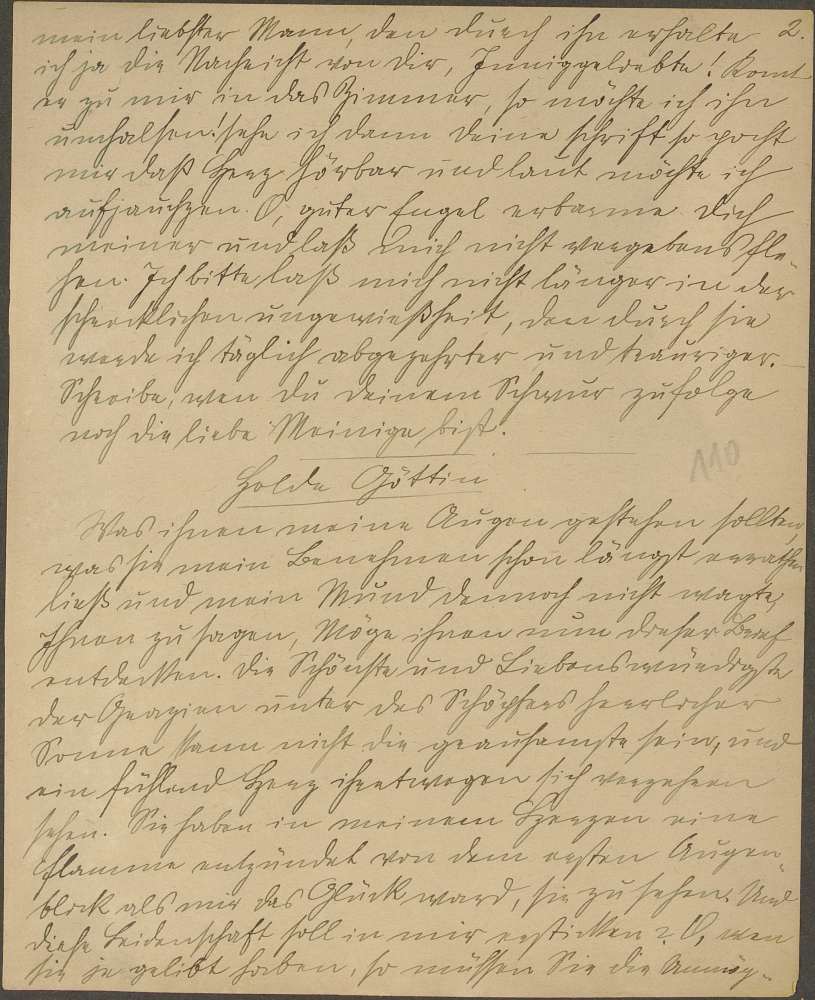 mein liebster Mann, den durch ihn erhalte 2.
ich ja die Nachricht von Dir, Inniggeliebte! Komt
er zu mir in das Zimmer, so möchte ich ihn
umhalsen! sehe ich dann Deine Schrift so pocht
mir daß Herz hörbar und laut möchte ich
aufjauchzen. O, guter Engel erbarme Dich
meiner und laß mich nicht vergebens fle-
hen. Ich bitte, laß mich nicht länger in der
schrecklichen ungewießheit, den durch sie
werde ich täglich abgezehrter und trauriger.
Schreibe, wen Du deinem Schwur zufolge
noch die liebe Meinige bist.
110
Holde Göttin
Was ihnen meine Augen gestehen sollten,
was sie mein Benehmen schon längst errathen
ließ und mein Mund dennoch nicht wagte,
Ihnen zu sagen, Möge ihnen nun dieser Brief
entdecken. Die Schönste und Liebenswürdigste
der Grazien unter des Schöpfers herrlicher
Sonne kann nicht die grausamste sein, und
ein fühlend Herz ihretwegen sich verzehren
sehen. Sie haben in meinem Herzen eine
Flamme entzündet von dem ersten Augen-
blick als mir das Glück ward, sie zu sehen. Und
diese Leidenschaft soll in mir ersticken? O, wen
sie je gelibt haben, so müssen Sie die